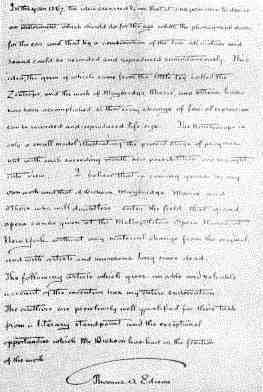 In the year 1887, the idea occurred to me that it was possible to devise
an instrument which should do for the eye what the phonograph does
for the ear, and that by a combination of the two all motion and
sound could be recorded and reproduced simultaneously. This
idea, the germ of which came from the little toy called the
Zoetrope, and the work of Muybridge, Marié, and others has
now been accomplished, so that every change of facial expression
can be recorded and reproduced life size. The Kinetoscope is
only a small model illustrating the present stage of progress
but with each succeeding month new possibilities are brought
into view. I believe that in coming years by my
own work and that of Dickson, Muybridge Marié and
others who will doubtless enter the field that grand
opera can be given at the Metropolitan Opera House at
New York without any material change from the original,
and with artists and musicians long since dead.
The following article which gives an able and reliable
account of the invention has my entire endorsation.
The authors are peculiarly well qualified for their task
from a literary standpoint and the exceptional
opportunities which Mr Dickson has had in the fruition
of the work
Thomas A Edison